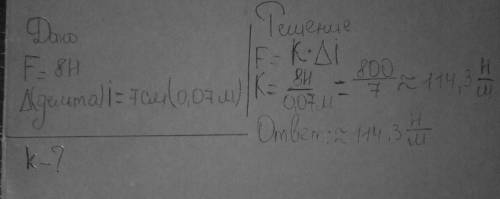 Дано
F = 8Н
Δ(дельта)l = 7см(0,07м)
k - ?
Решение
F = K·Δl
K = 8Н/0,07м = 800/7 ≈ 114,3 Н/м
Ответ: ≈ 114,3 Н/м